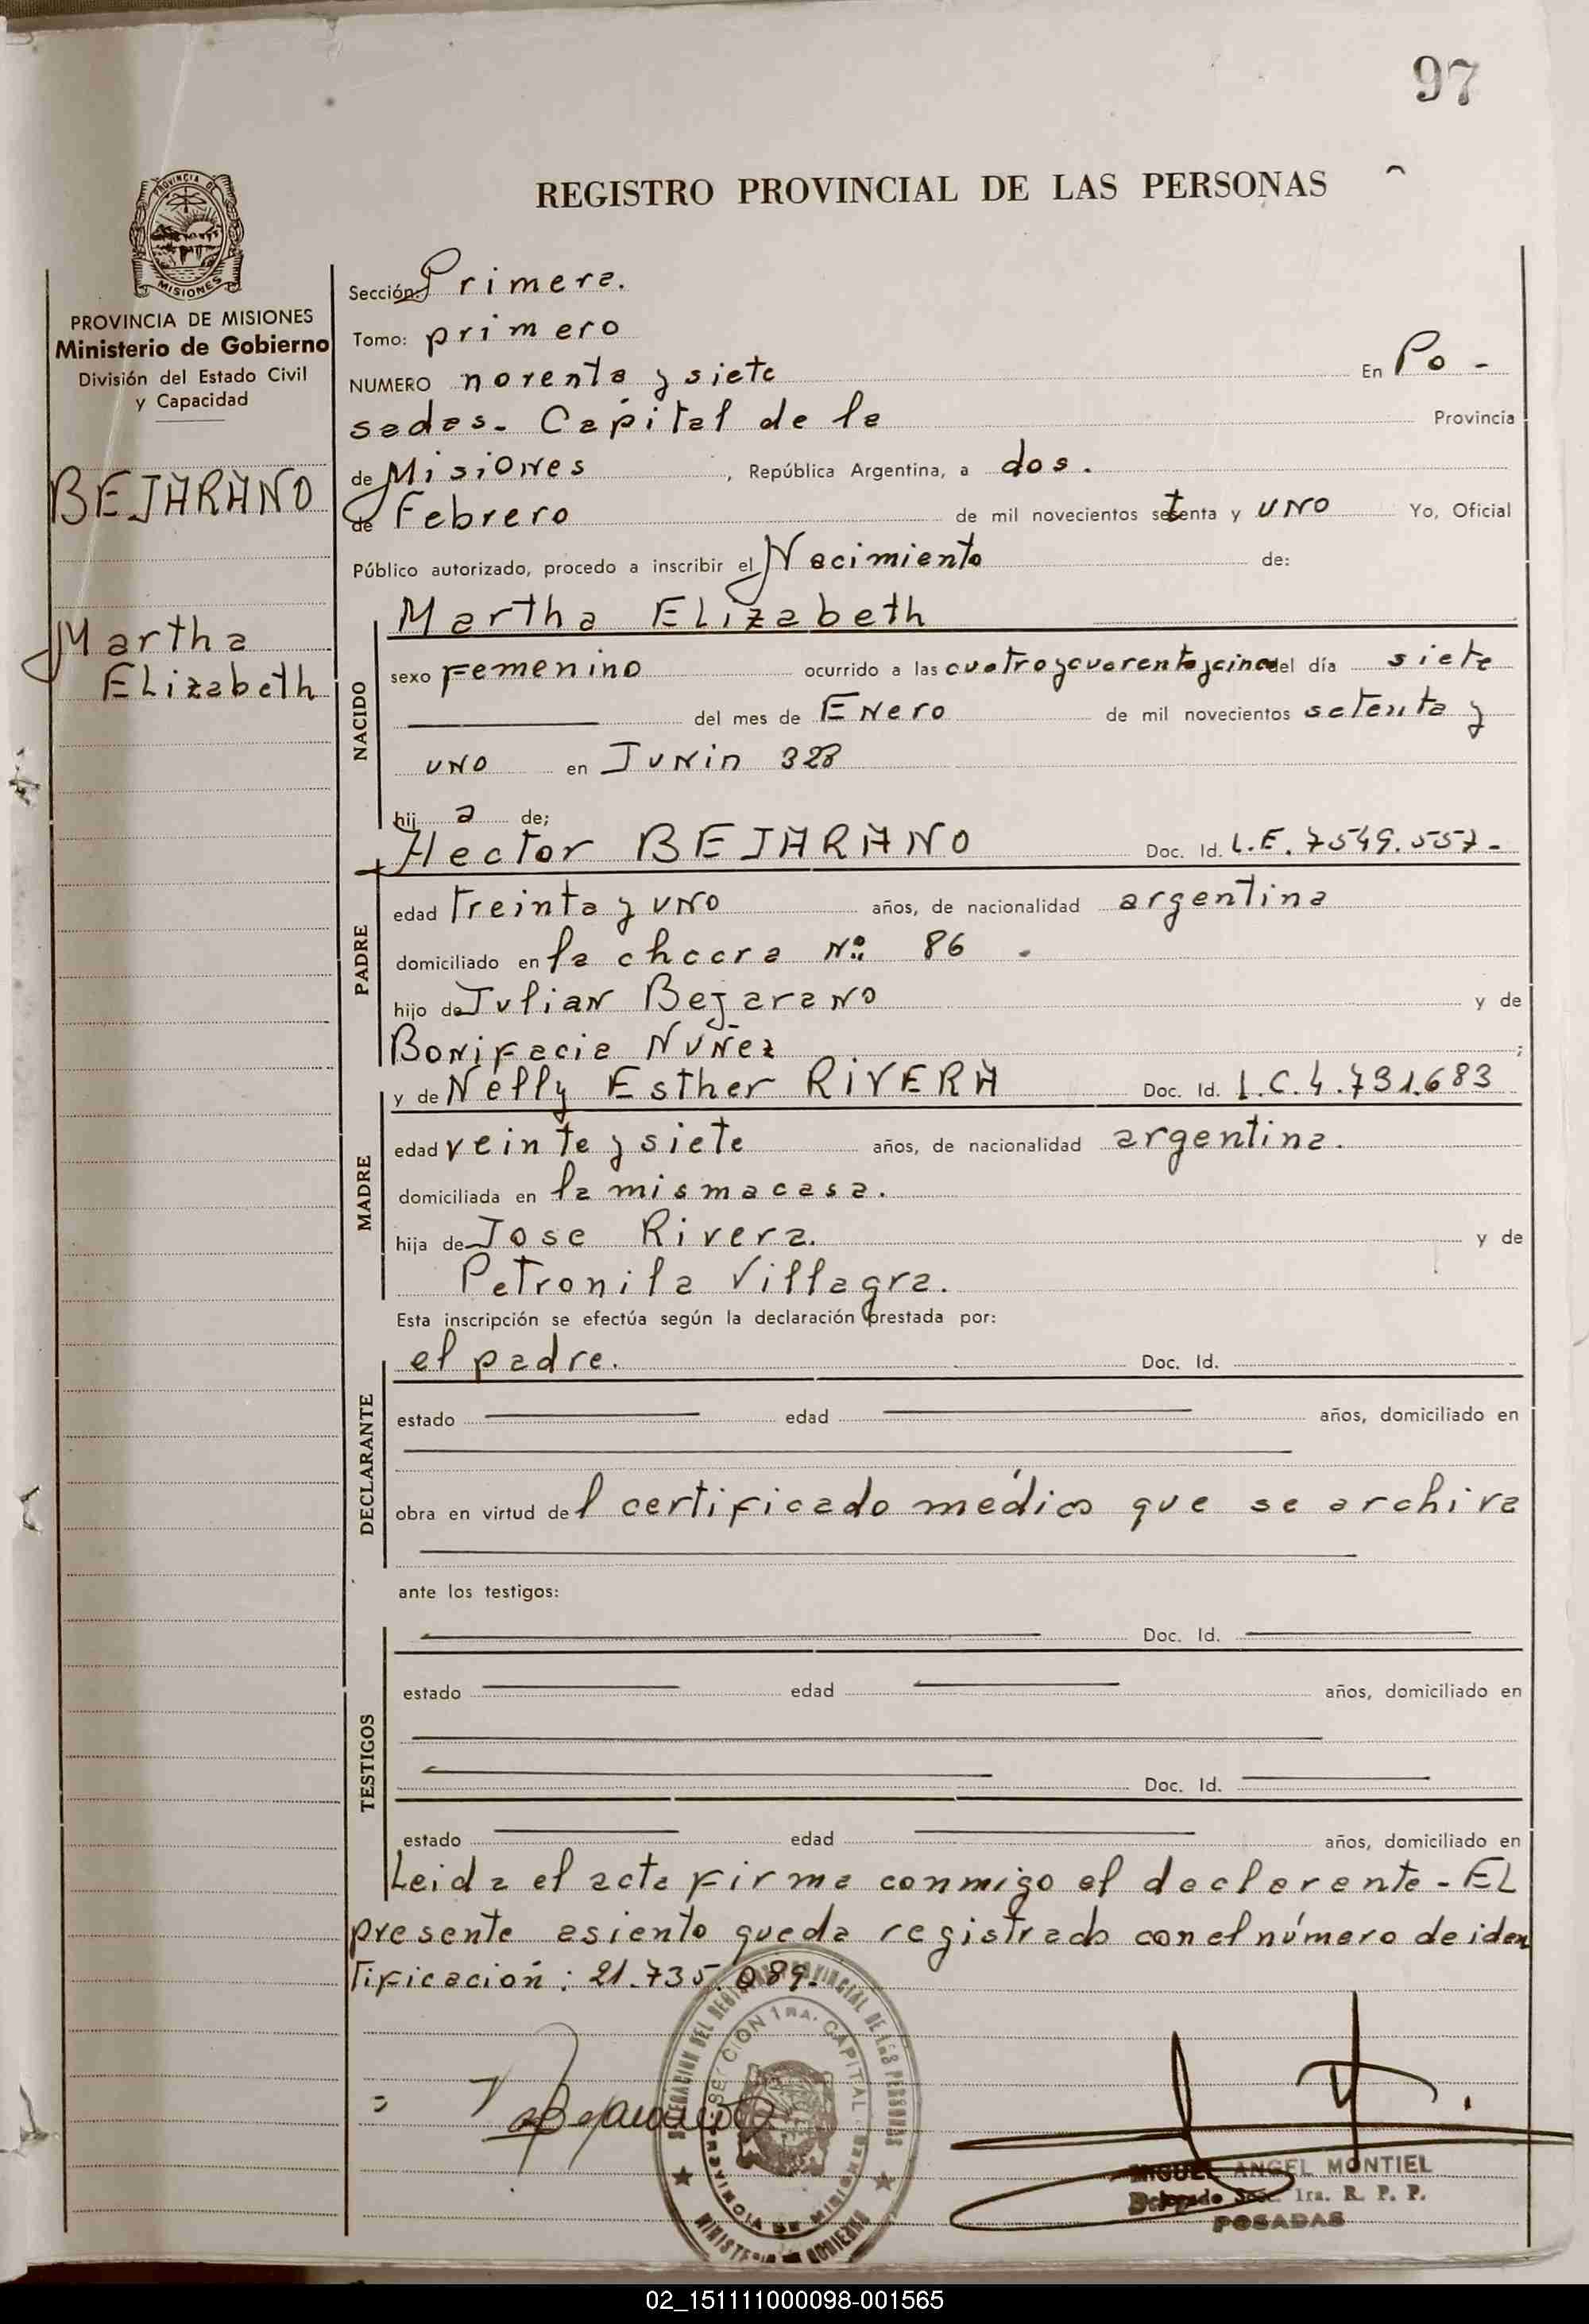 97
REGISTRO PROVINCIAL DE LAS PERSONAS
PROVINCIA DE
MISIONES
PROVINCIA DE MISIONES
Ministerio de Gobierno
División del Estado Civil
y Capacidad
BEJARANO
Martha
Elizabeth
Sección: Primera.
Tomo: primero
NUMERO noventa y siete En Po-
sadas. Capital de la Provincia
de Misiones, República Argentina, a dos.
de Febrero de mil novecientos setenta y uno Yo, Oficial
Público autorizado, procedo a inscribir el Nacimiento de:
NACIDO
Martha Elizabeth
sexo Femenino ocurrido a las cuatro y cuarenta y cinco del día siete
del mes de Enero de mil novecientos setenta y
uno en Junin 328
hij a de;
PADRE
Hector BEJARANO Doc. Id. L.E. 7549.557-
edad treinta y uno años, de nacionalidad argentina
domiciliado en la chacra Nº 86.
hijo de Julian Bejarano y de
Bonifacia Nuñez;
MADRE
y de Nelly Esther RIVERA Doc. Id. L.C.4.731.683
edad veinte y siete años, de nacionalidad argentina.
domiciliada en la misma casa.
hija de Jose Rivera. y de
Petronila Villagra.
Esta inscripción se efectúa según la declaración prestada por:
DECLARANTE
el padre. Doc. Id.
estado edad años, domiciliado en
obra en virtud del certificado médico que se archiva
ante los testigos:
TESTIGOS
Doc. Id.
estado edad años, domiciliado en
Doc. Id.
estado edad años, domiciliado en
Leida el acta firma conmigo el declarante - EL
presente asiento queda registrado con el número de iden
tificación: 21.735.089.
DELEGACION DEL REGISTRO PROVINCIAL DE LAS PERSONAS
SECCION 1RA. CAPITAL
PROVINCIA DE MISIONES
MINISTERIO DE GOBIERNO
MIGUEL ANGEL MONTIEL
Delegado Sec. 1ra. R. P. P.
POSADAS
02_151111000098-001565